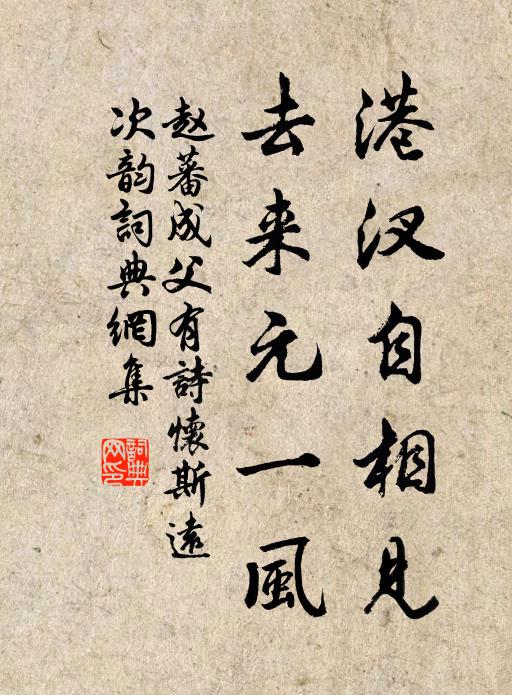 港汊自相見
去来元一風
赵蕃成父有詩懷斯遠
次韵詞典網集
詞典
网印